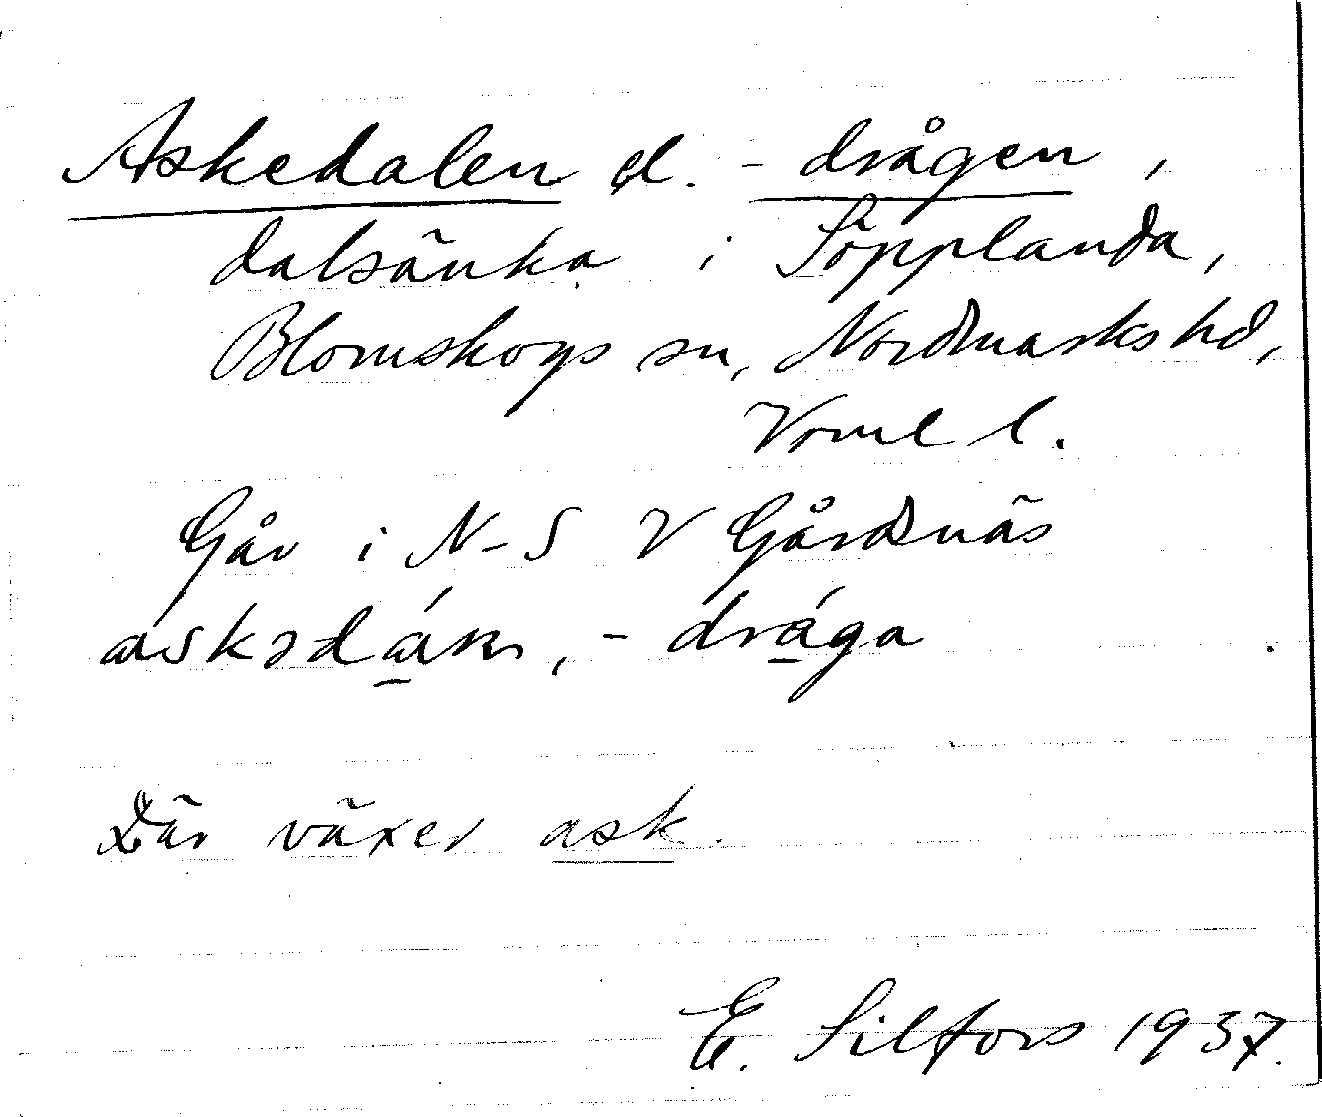 Askedalen el. -drågen,
dalsänka i Söpplanda,
Blomskogs sn, Nordmarks hd,
Vrml l.
Går i N-S V Gårdnäs
-dråga
Där växer ask.
E. Silfors 1937.